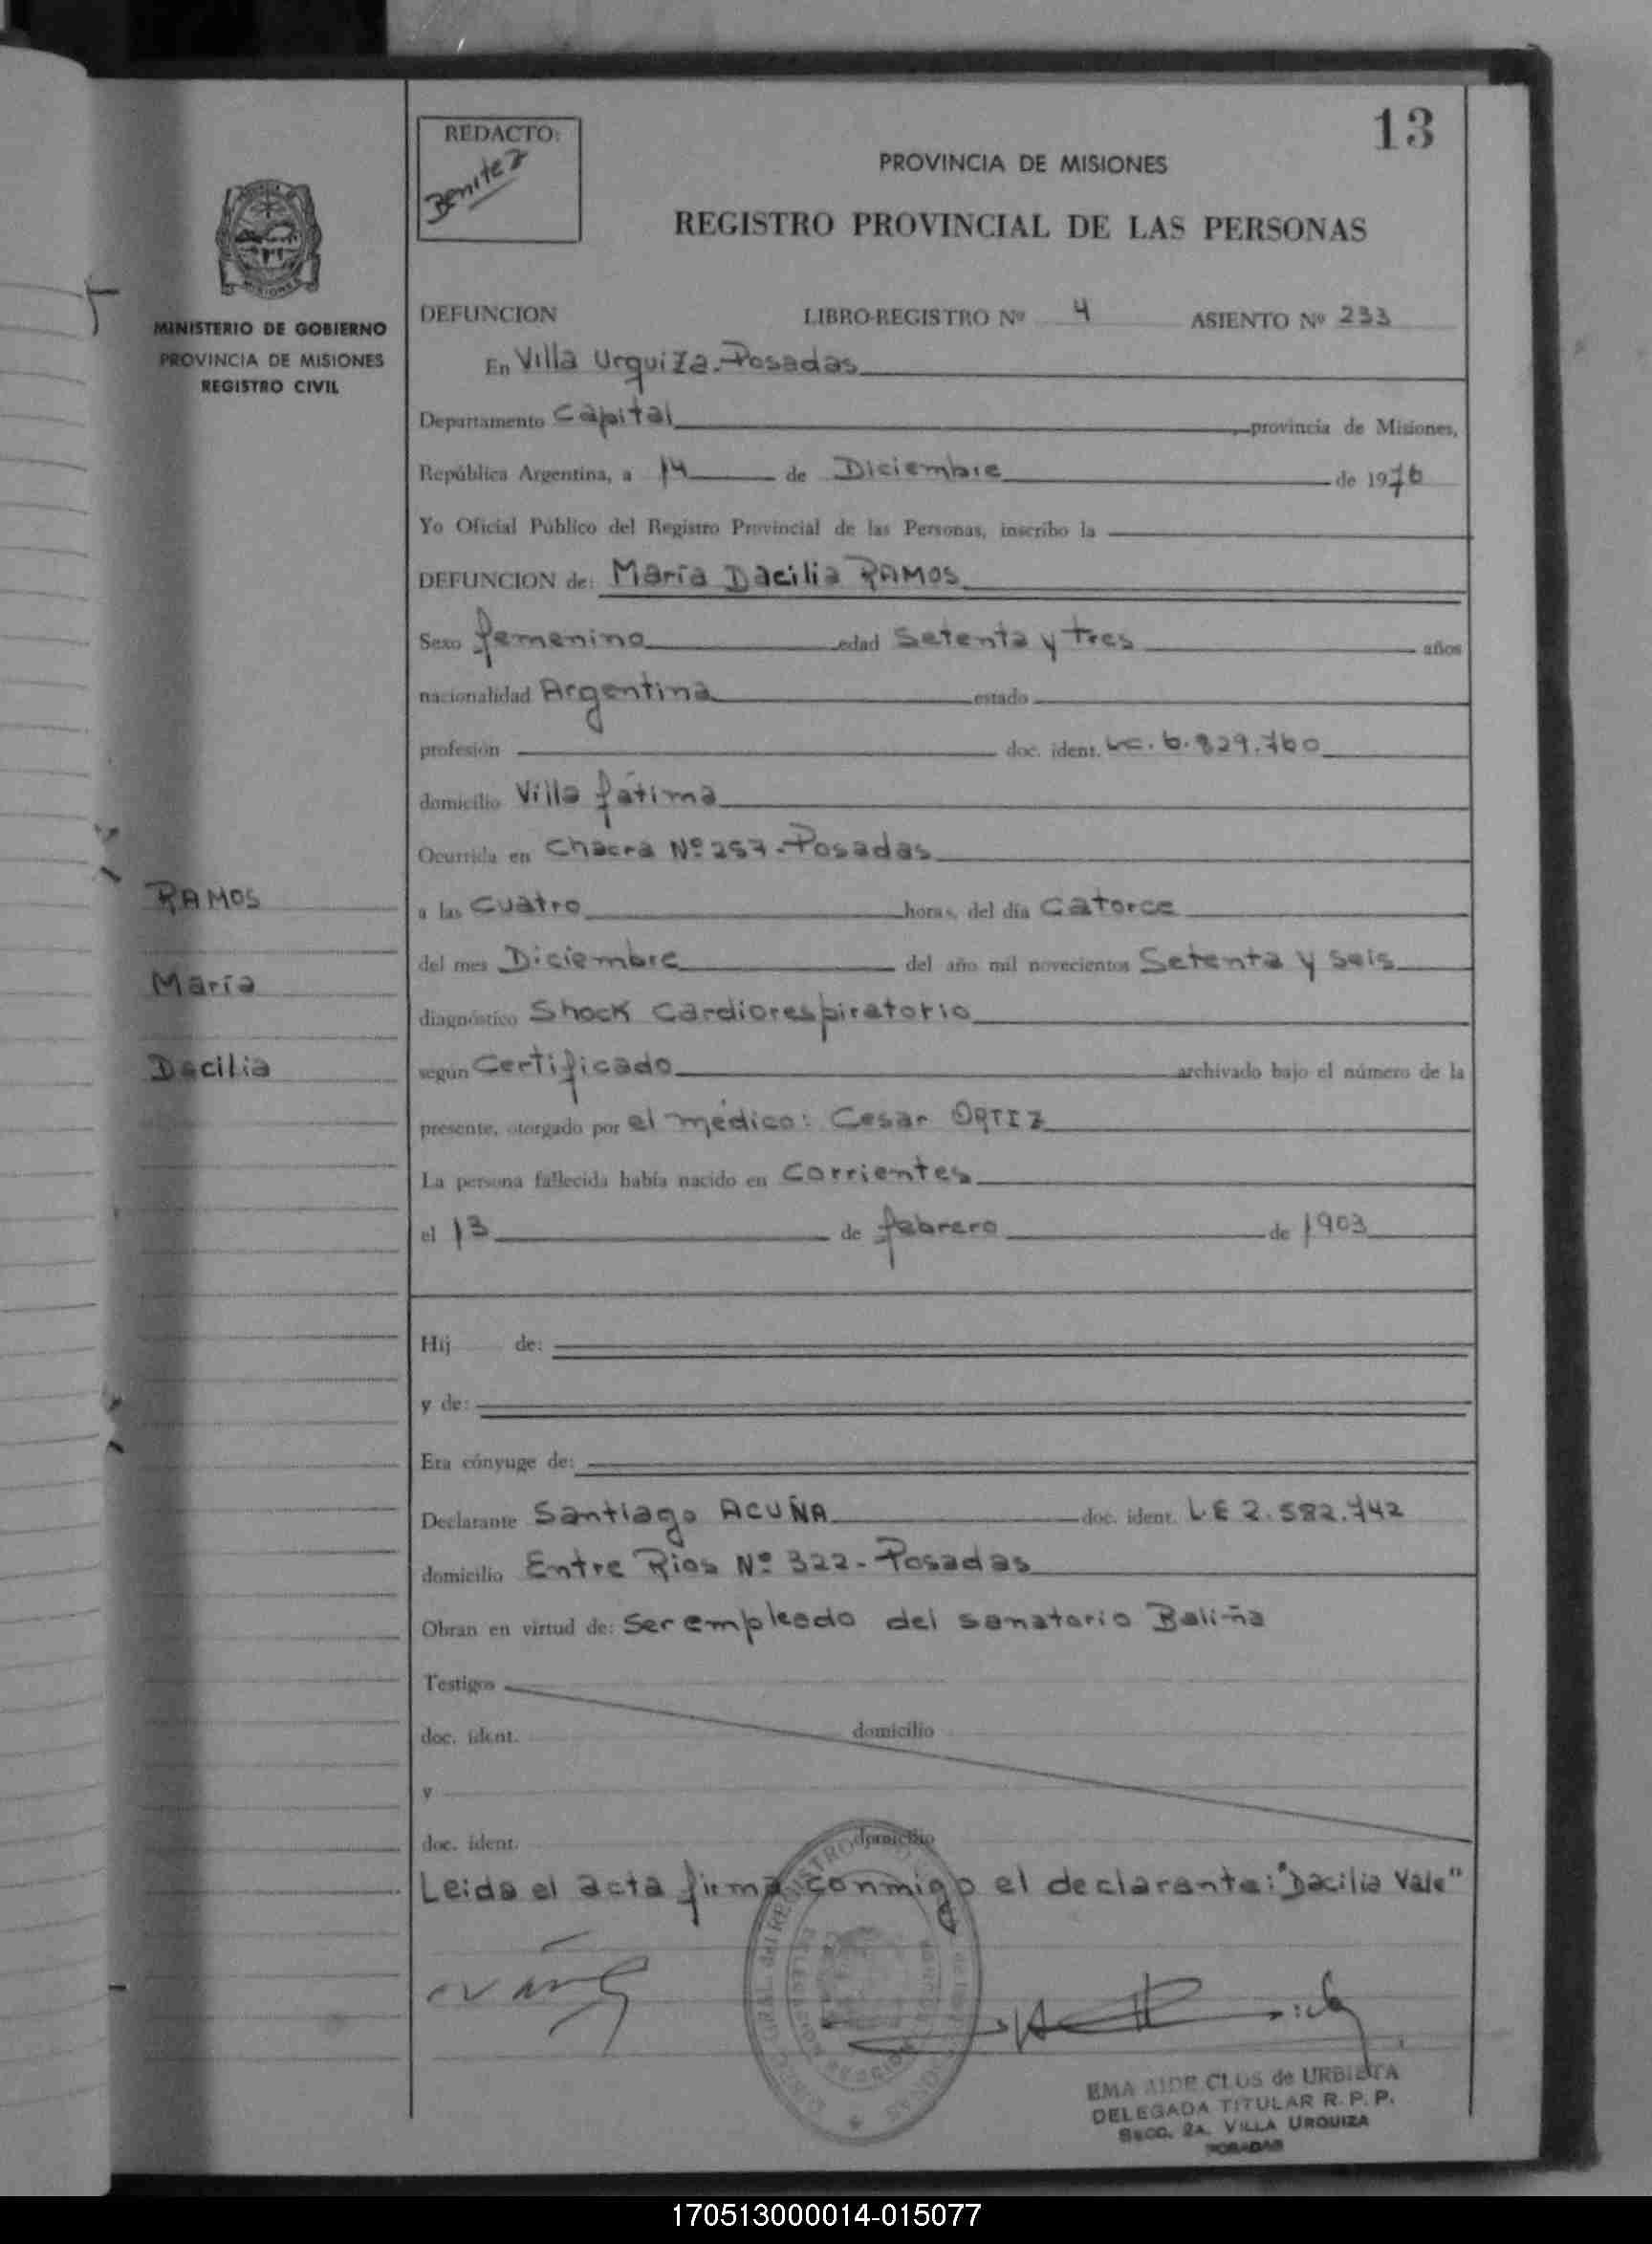 13
REDACTO:
Benitez
PROVINCIA DE MISIONES
REGISTRO PROVINCIAL DE LAS PERSONAS
MINISTERIO DE GOBIERNO
PROVINCIA DE MISIONES
REGISTRO CIVIL
DEFUNCION LIBRO-REGISTRO Nº 4 ASIENTO Nº 233
En Villa Urquiza-Posadas
Departamento Capital, provincia de Misiones,
República Argentina, a 14 de Diciembre de 1976
Yo Oficial Público del Registro Provincial de las Personas, inscribo la
DEFUNCION de: María Dacilia RAMOS
Sexo femenino edad Setenta y tres años
nacionalidad Argentina estado
profesión doc. ident. LC. 6.829.760
domicilio Villa fátima
Ocurrida en Chacra Nº 257-Posadas
RAMOS
a las Cuatro horas, del día Catorce
del mes Diciembre del año mil novecientos Setenta y seis
María
diagnóstico Shock Cardiorespiratorio
Dacilia
según Certificado archivado bajo el número de la
presente, otorgado por el médico: Cesar ORTIZ
La persona fallecida había nacido en Corrientes
el 13 de febrero de 1903
Hij de:
y de:
Era cónyuge de:
Declarante Santiago ACUÑA doc. ident. LE 2.582.742
domicilio Entre Rios Nº 322-Posadas
Obran en virtud de: Ser empleado del sanatorio Baliña
Testigos
doc. ident. domicilio
y
doc. ident. domicilio
Leida el acta firma conmigo el declarante: "Dacilia Vale"
EMA AIDE CLOS de URBIETA
DELEGADA TITULAR R. P. P.
SECC. 2A. VILLA URQUIZA
POSADAS
170513000014-015077